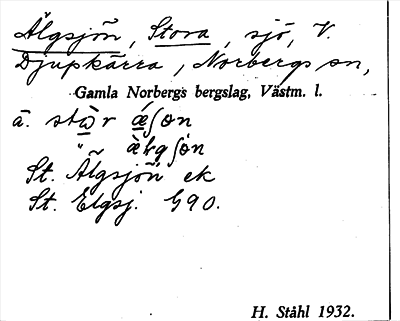 Älgsjön, Stora, sjö, V.
Djupkärra, Norbergs sn,
Gamla Norbergs bergslag, Västm. l.
ä. stὼr ǽʃøn
" æ̀lgʃøn
St. Älgsjön ek
St. Elgsj. G90.
H. Ståhl 1932.